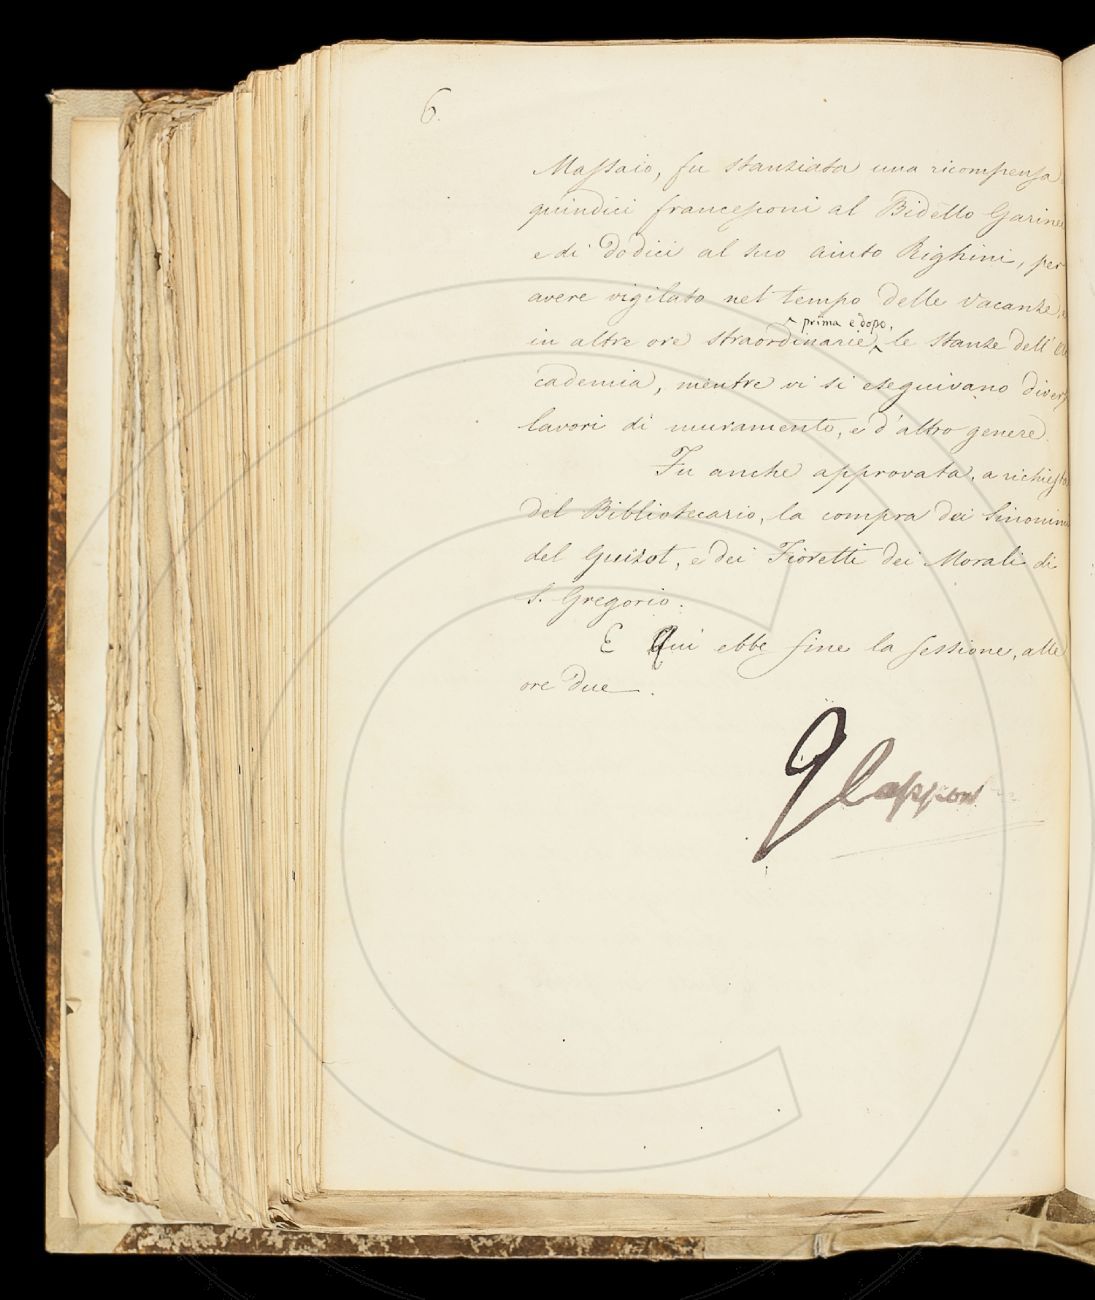 6.
Massaio, fu stanziata una ricompensa
quindici francesconi al Bidello Garine
e di dodici al suo aiuto Righini, per
avere vigilato nel tempo delle vacanze,
prima e dopo,
in altre ore straordinarie, le stanze dell'
cademia, mentre vi si eseguivano diver
lavori di muramento, e d'altro genere.
Fu anche approvata, a richiesta
del Bibliotecario, la compra dei Sinonimi
del Guizot, e dei Fioretti dei Morali di
S. Gregorio.
E Qui ebbe fine la sessione, alle
ore due.
G Capponi